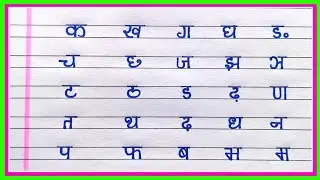 क ख ग घ ङ
च छ ज झ ञ
ट ठ ड ढ़ ण
त थ द ध न
प फ ब भ म